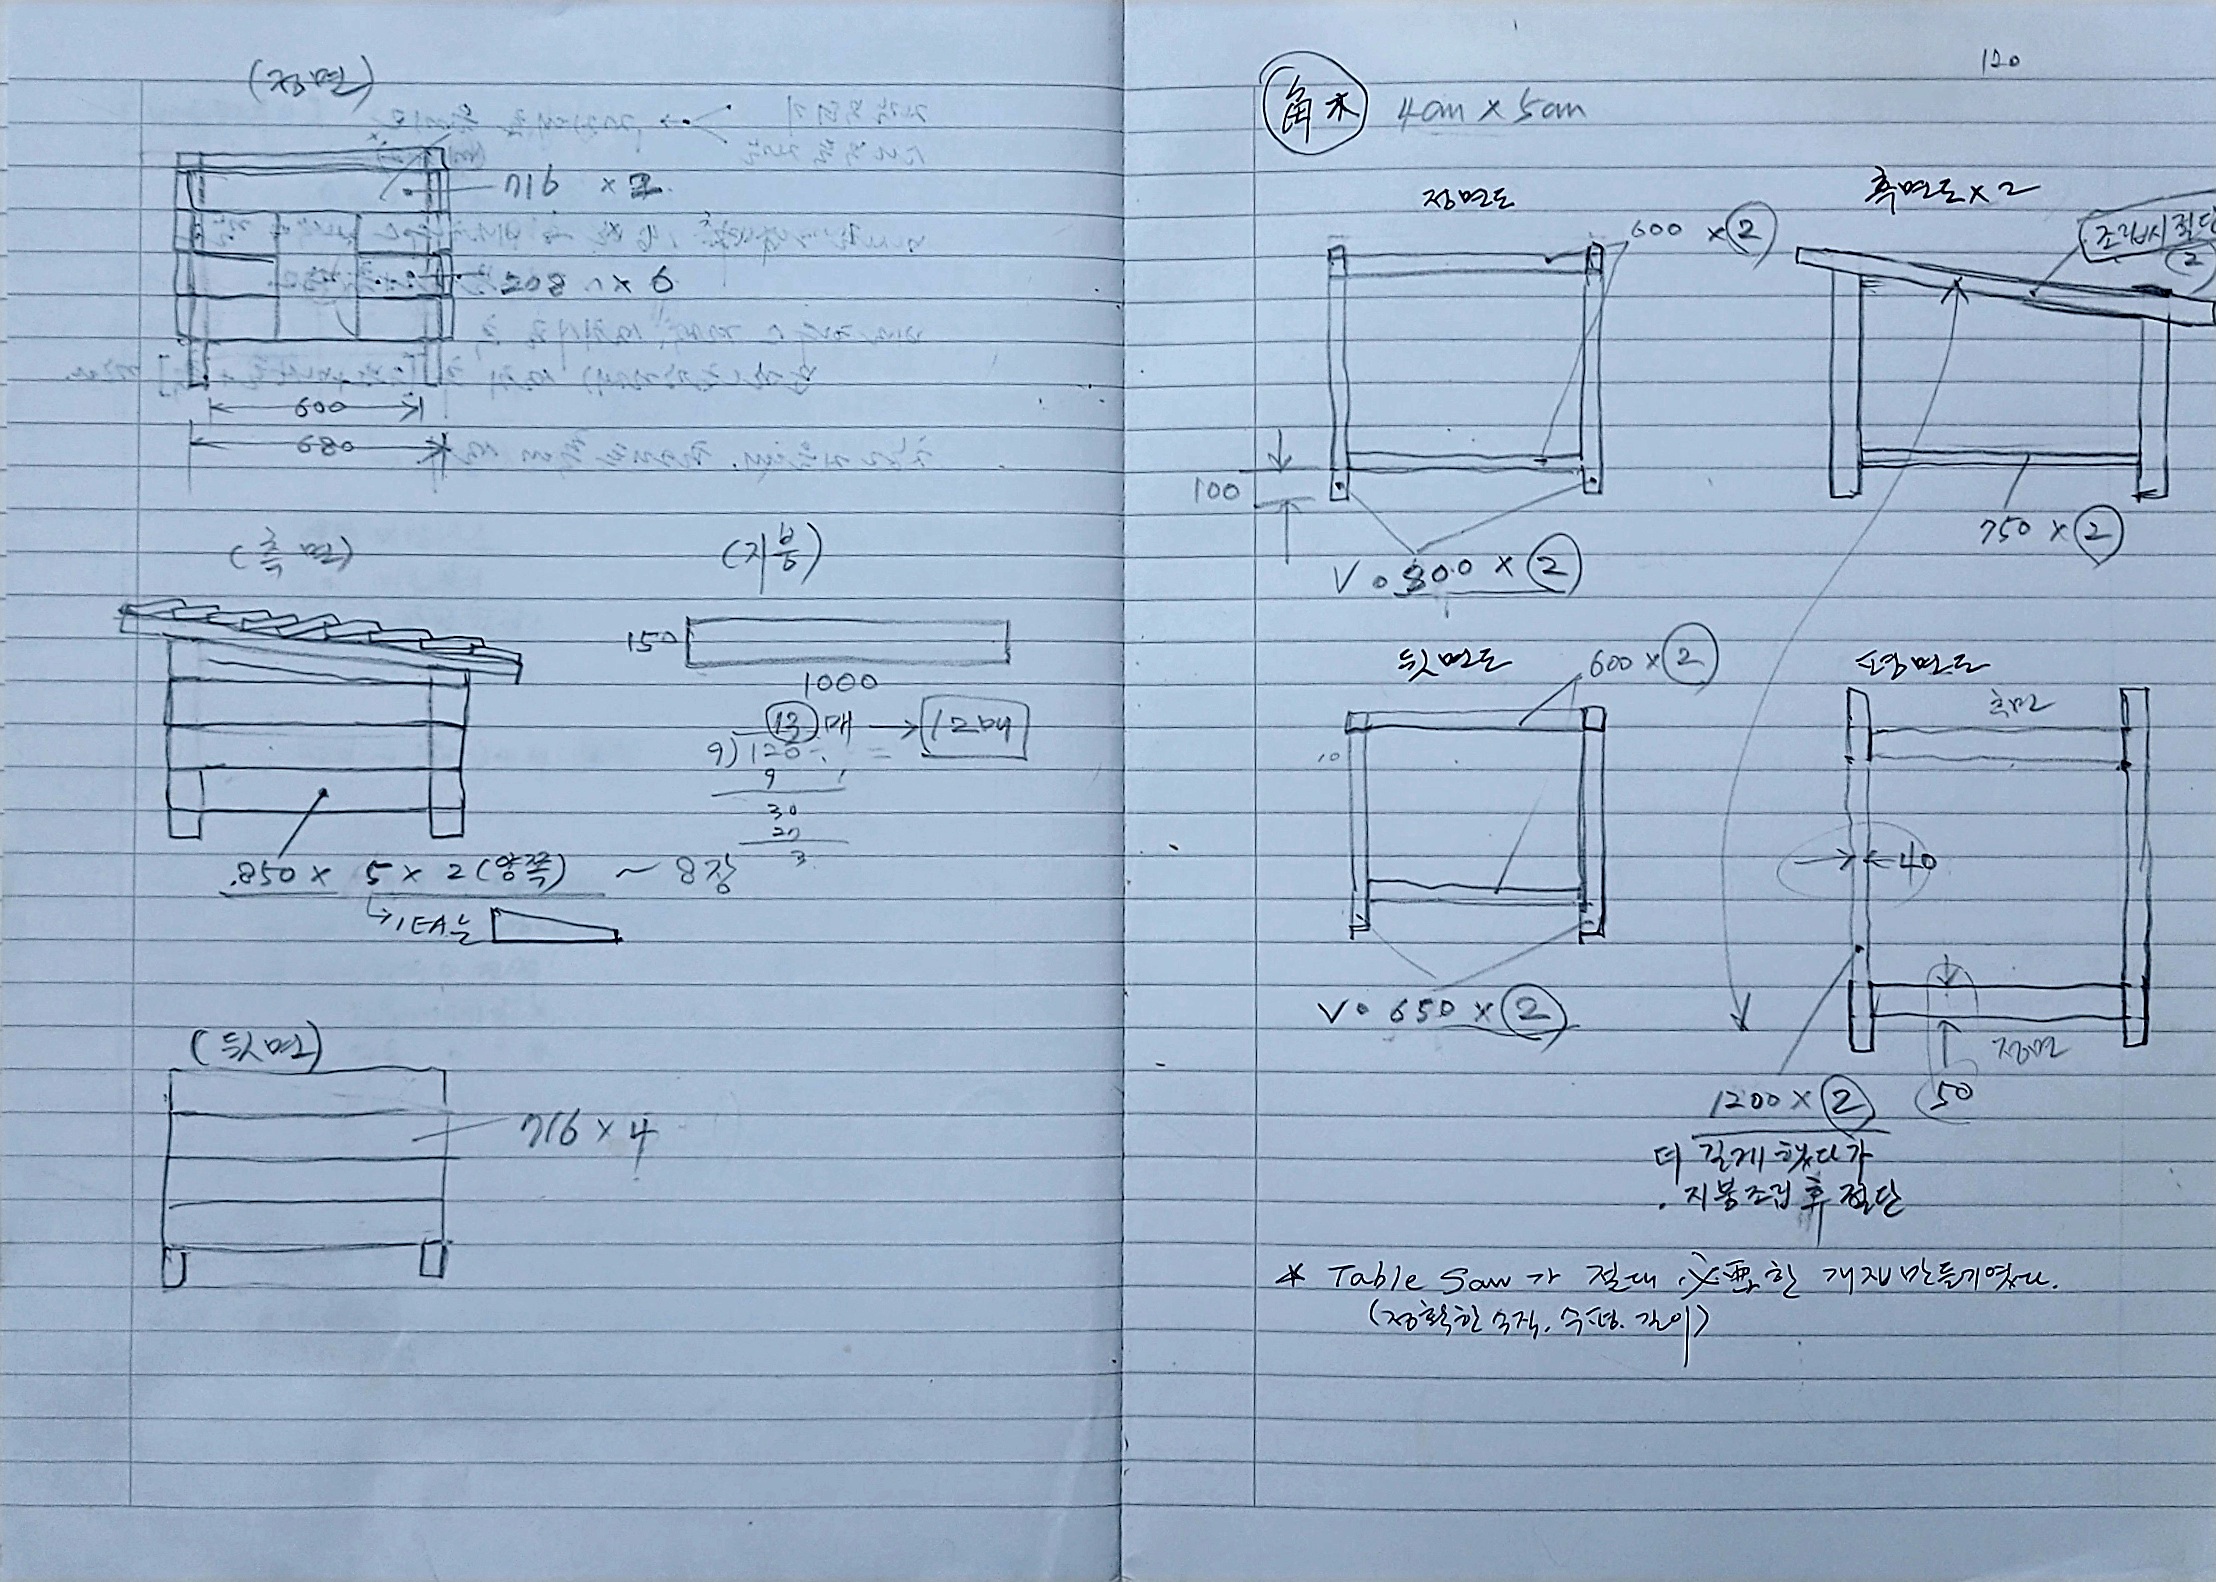 (정면)
716 × 2
208 × 6
600
680
(측면)
(지붕)
150
1000
13 매 → 12매
9) 120
9
30
27
3
850 × 5 × 2 (양쪽) ~ 8장
↳ 1EA는
(뒷면)
716 × 4
120
角木 4cm × 5cm
정면도
측면도 × 2
600 × 2
조립시 절단
2
100
V. 800 × 2
750 × 2
뒷면도
600 × 2
평면도
측면
40
V. 650 × 2
정면
50
1200 × 2
더 길게 했다가
지붕조립 후 절단
* Table Saw가 절대 必要한 개집 만들기였다.
(정확한 수직, 수평, 길이)